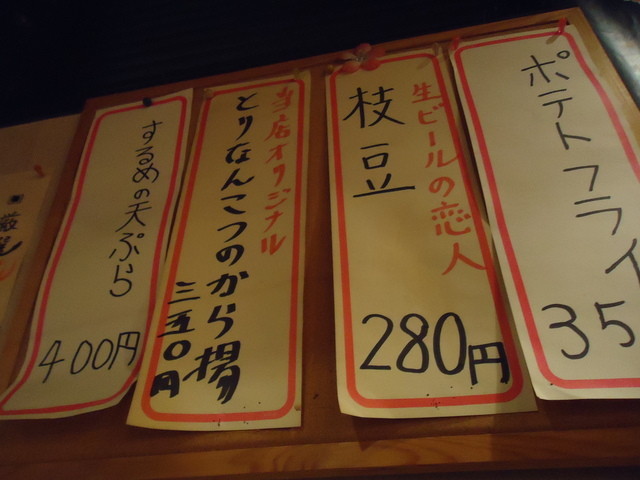 ポテトフライ
35
生ビールの恋人
枝豆
280円
当店オリジナル
とりなんこつのから揚
三五〇円
するめの天ぷら
400円
厳選